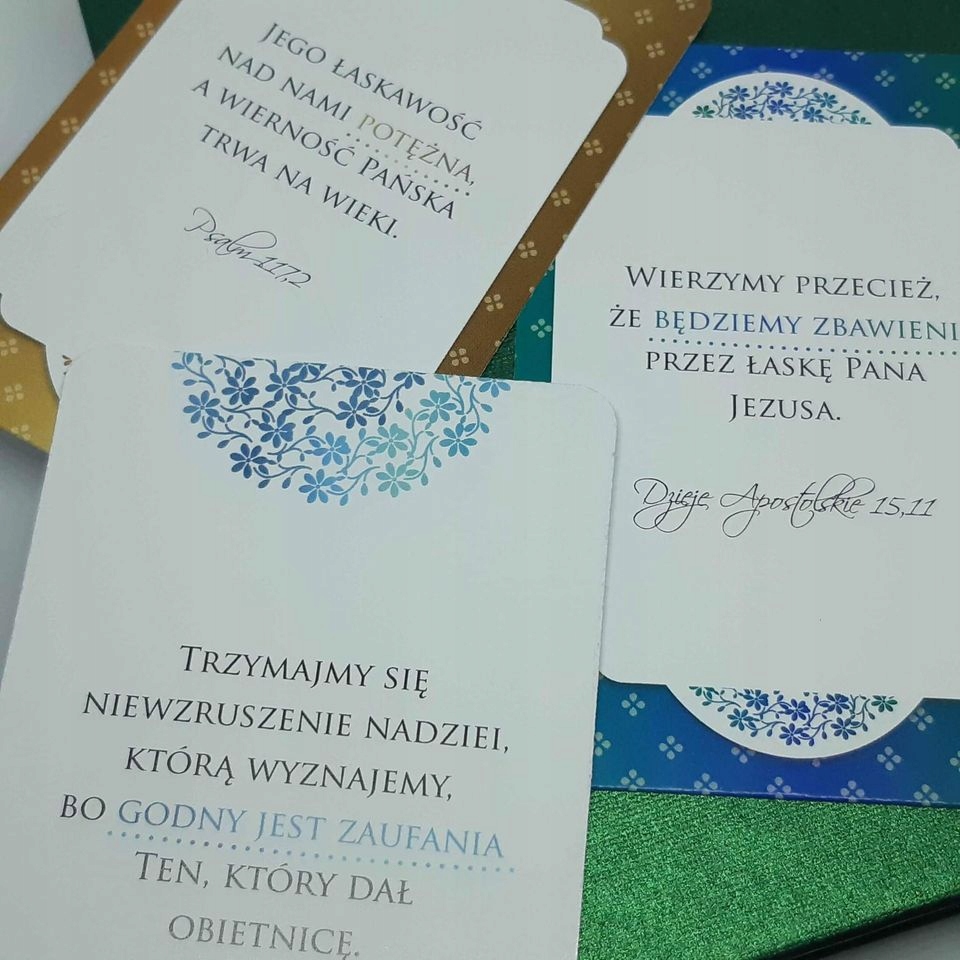 Jego łaskawość
nad nami potężna,
a wierność Pańska
trwa na wieki.
Psalm 117,2
Wierzymy przecież,
że będziemy zbawieni
przez łaskę Pana
Jezusa.
Dzieje Apostolskie 15,11
Trzymajmy się
niewzruszenie nadziei,
którą wyznajemy,
bo godny jest zaufania
Ten, który dał
obietnicę.